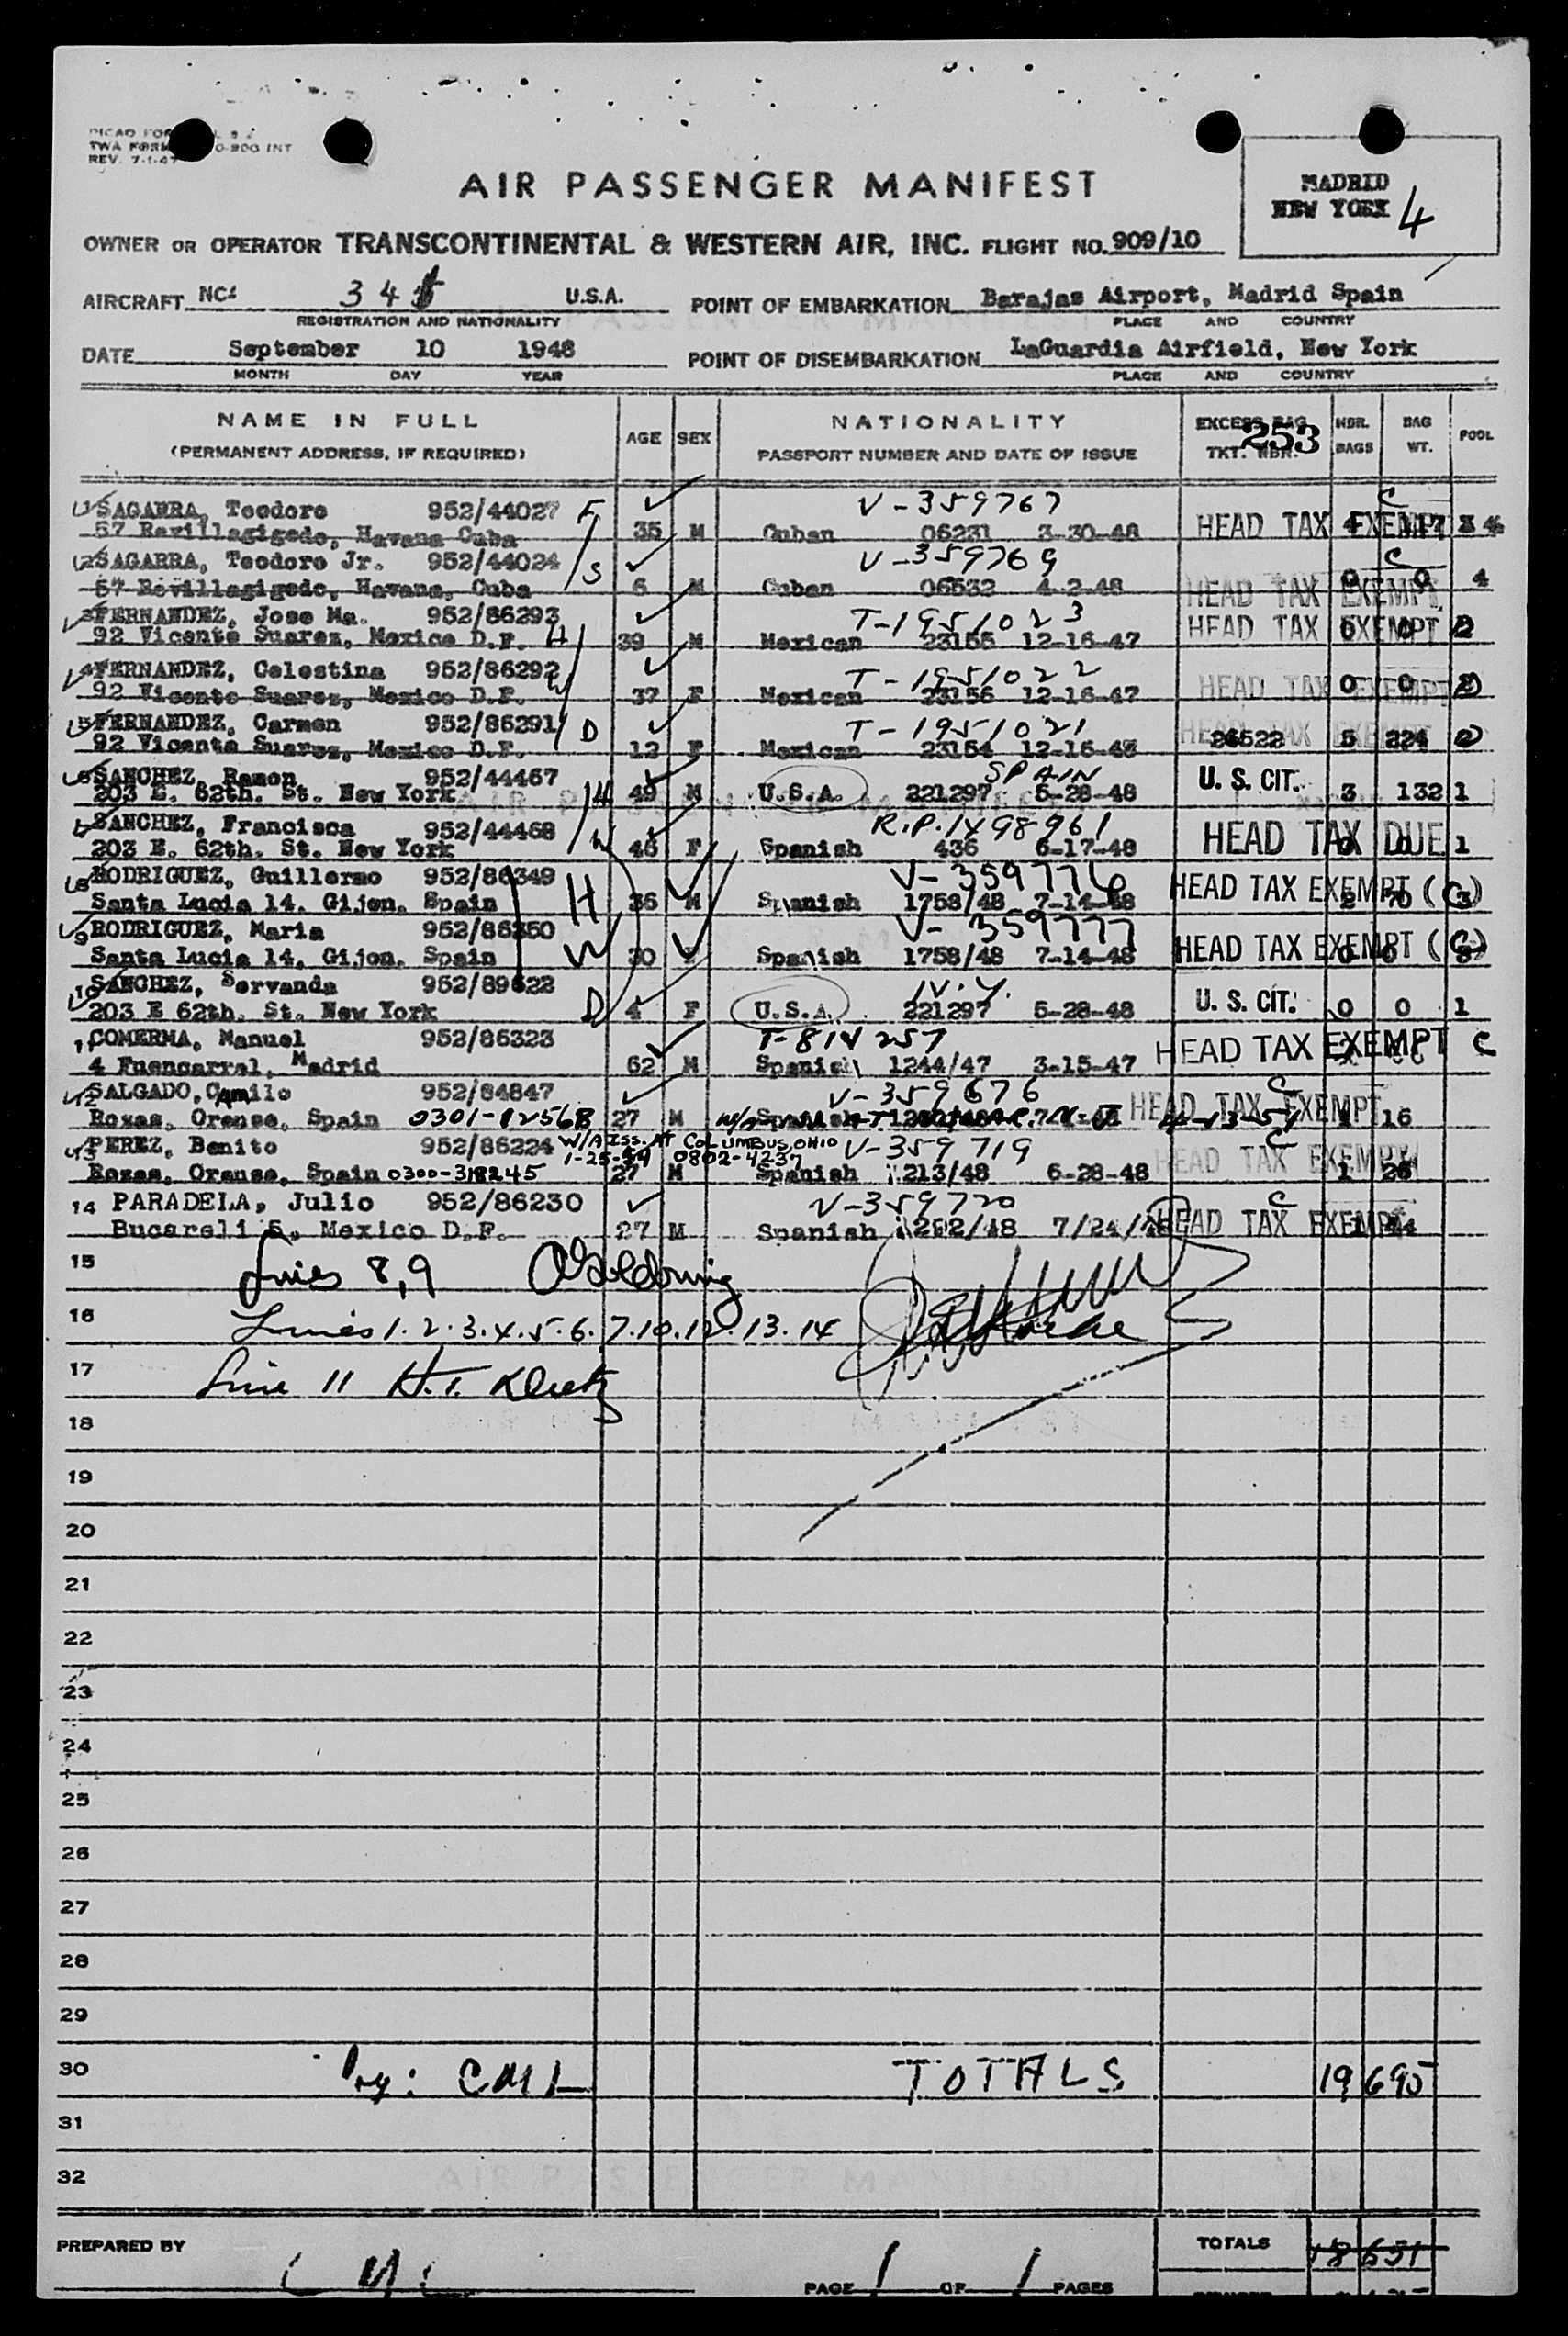 REV. 7-1-47
AIR PASSENGER MANIFEST
MADRID
NEW YORK 4
OWNER OR OPERATOR TRANSCONTINENTAL & WESTERN AIR, INC. FLIGHT NO. 909/10
AIRCRAFT NC 34 U.S.A. POINT OF EMBARKATION Barajas Airport, Madrid Spain
REGISTRATION AND NATIONALITY PLACE AND COUNTRY
DATE September 10 1948 POINT OF DISEMBARKATION LaGuardia Airfield, New York
MONTH DAY YEAR PLACE AND COUNTRY
NAME IN FULL AGE SEX NATIONALITY EXCESS BAG NBR. BAG POOL
(PERMANENT ADDRESS, IF REQUIRED) PASSPORT NUMBER AND DATE OF ISSUE TKT. NBR. 253 BAGS WT.
1 SAGARRA, Teodoro 952/44027 F V-359767 C
57 Revillagigedo, Havana Cuba 35 M Cuban 06231 3-30-48 HEAD TAX EXEMPT 4
2 SAGARRA, Teodoro Jr. 952/44024 S V-359769 C
57 Revillagigedo, Havana, Cuba 6 M Cuban 06532 4-2-48 HEAD TAX EXEMPT 0 0 4
3 FERNANDEZ, Jose Ma. 952/86293 T-1951023
92 Vicente Suarez, Mexico D.F. H 39 M Mexican 23155 12-16-47 HEAD TAX EXEMPT 0 0 2
4 FERNANDEZ, Celestina 952/86292 W T-1951022
92 Vicente Suarez, Mexico D.F. 37 F Mexican 23156 12-16-47 HEAD TAX EXEMPT 0 0 2
5 FERNANDEZ, Carmen 952/86291 D T-1951021
92 Vicente Suarez, Mexico D.F. 12 F Mexican 23154 12-16-47 HEAD TAX EXEMPT 26522 5 224 2
6 SANCHEZ, Ramon 952/44467 SPAIN
203 E. 62th. St. New York H 49 M U.S.A. 221297 5-28-48 U. S. CIT. 3 132 1
7 SANCHEZ, Francisca 952/44468 R.P.1498961
203 E. 62th. St. New York W 46 F Spanish 436 6-17-48 HEAD TAX DUE 0 0 1
8 RODRIGUEZ, Guillermo 952/86349 H V-359776
Santa Lucia 14, Gijon, Spain 36 M Spanish 1758/48 7-14-48 HEAD TAX EXEMPT (C) 2 70 3
9 RODRIGUEZ, Maria 952/86350 W V-359777
Santa Lucia 14, Gijon, Spain 30 Spanish 1758/48 7-14-48 HEAD TAX EXEMPT (C) 0 0 3
10 SANCHEZ, Servanda 952/89622 N.Y.
203 E 62th. St. New York D 4 F U.S.A. 221297 5-28-48 U. S. CIT. 0 0 1
11 COMERMA, Manuel 952/86323 T-814257
4 Fuencarral, Madrid 62 M Spanish 1244/47 3-15-47 HEAD TAX EXEMPT C
12 SALGADO, Camilo 952/84847 V-359676 C
Rozas, Orense, Spain 0301-82568 27 M Spanish HEAD TAX EXEMPT 4-13-54 1 16
13 PEREZ, Benito 952/86224 W/A ISS. AT COLUMBUS, OHIO V-359719 C
1-25-59 0802-4237
Rozas, Orense, Spain 0300-318245 27 M Spanish 1213/48 6-28-48 HEAD TAX EXEMPT 1 26
14 PARADELA, Julio 952/86230 V-359720 C
Bucareli 5, Mexico D.F. 27 M Spanish 1292/48 7/24/48 HEAD TAX EXEMPT 1 44
15 Lines 8,9
16 Lines 1.2.3.4.5.6.7.10.12.13.14
17 Line 11 H.T.
18
19
20
21
22
23
24
25
26
27
28
29
30 TOTALS 19 695
31
32
PREPARED BY TOTALS 18 651
PAGE 1 OF 1 PAGES